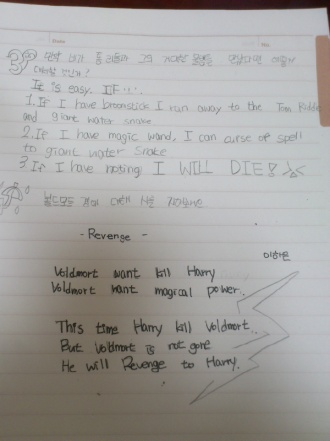 만약 내가 톰 리들과 그의 거대한 물뱀을 만났다면 어떻게
대처할 것인가?
It is easy. If...
1. If I have broomstick I run away to the Tom Riddle
and giant water snake
2. If I have magic wand, I can curse of spell
to giant water snake
3. If I have noting I WILL DIE!
볼드모트
- Revenge -
이하은
Voldmort want kill Harry
Voldmort want magical power..
This time Harry kill Voldmort..
But Voldmort is not gone
He will Revenge to Harry.